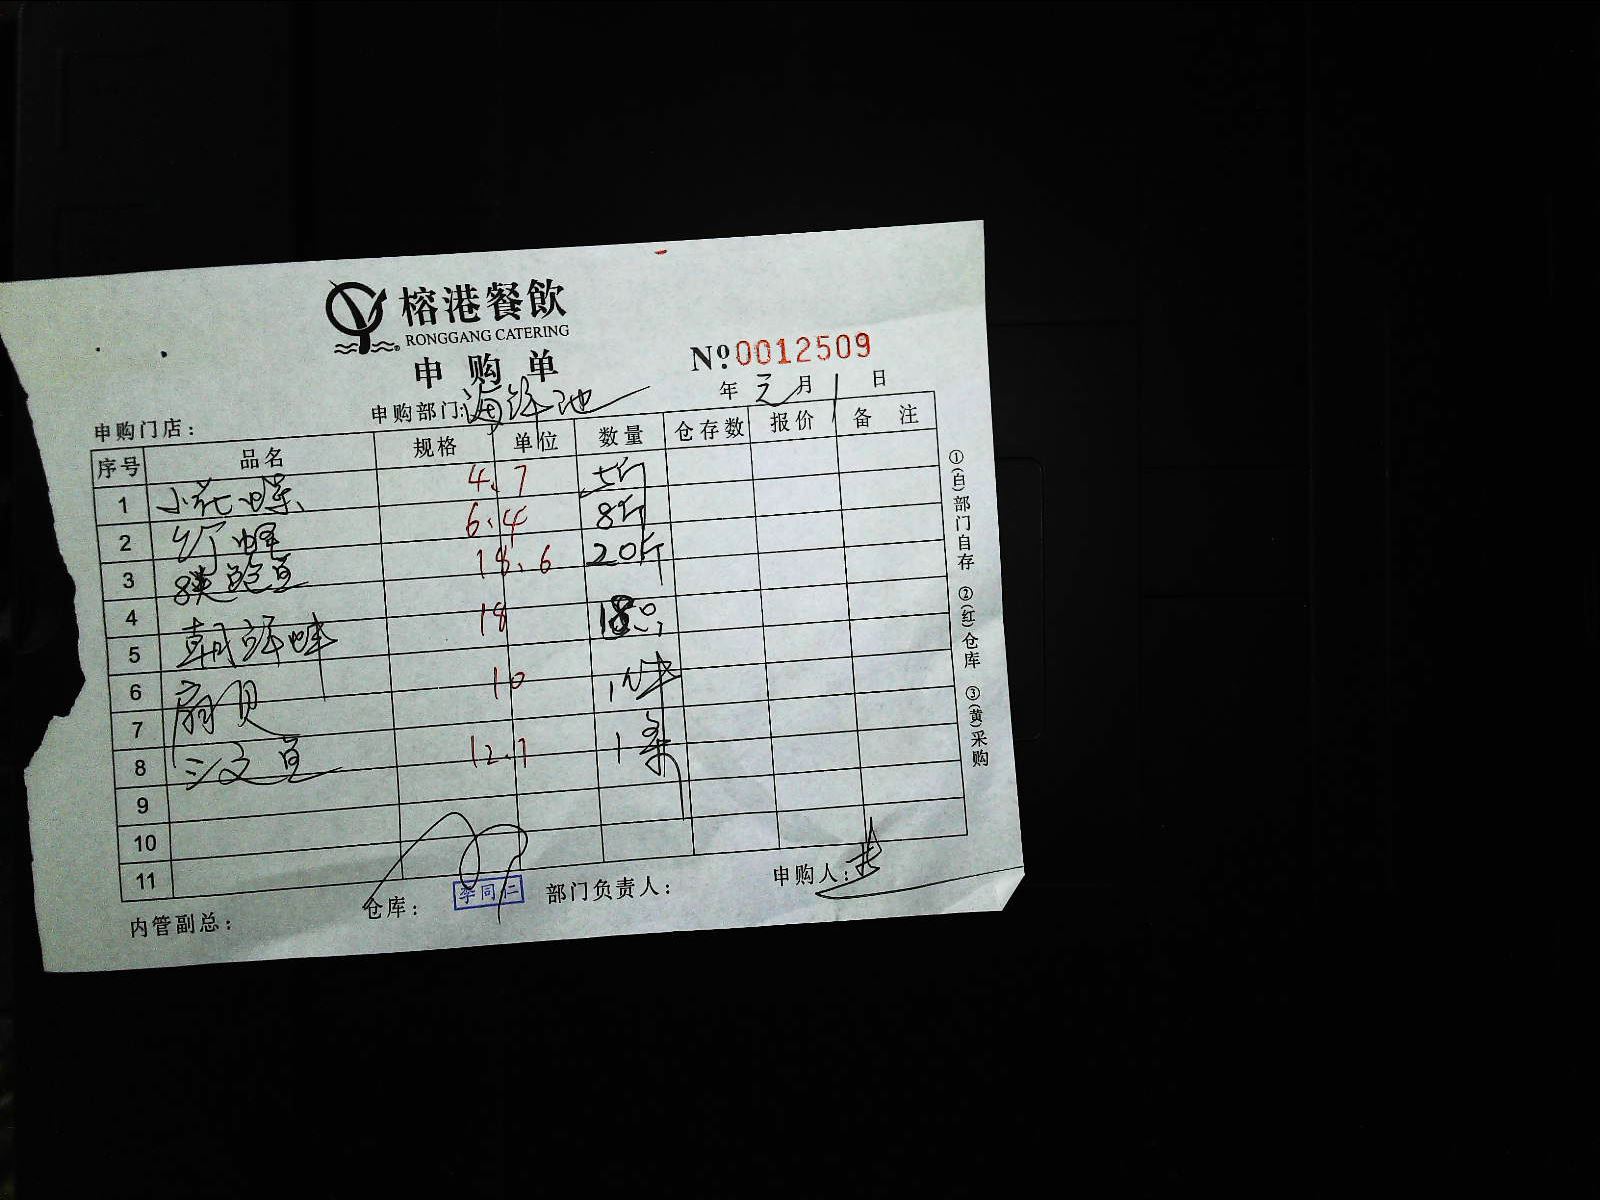 榕港餐飲
RONGGANG CATERING
申购单
No:0012509
年 元月 1 日
申购门店：
申购部门：海鲜池
序号 品名 规格 单位 数量 仓存数 报价 备注
1 小花螺 4.7 5斤
2 6.4 8斤
3 8头鲍鱼 18.6 20斤
4
5 朝鲜 18 18只
6
7 扇贝 10 1件
8 三文鱼 12.7 1条
9
10
11
①(白)部门自存 ②(红)仓库 ③(黄)采购
内管副总：
仓库：
李同仁
部门负责人：
申购人：